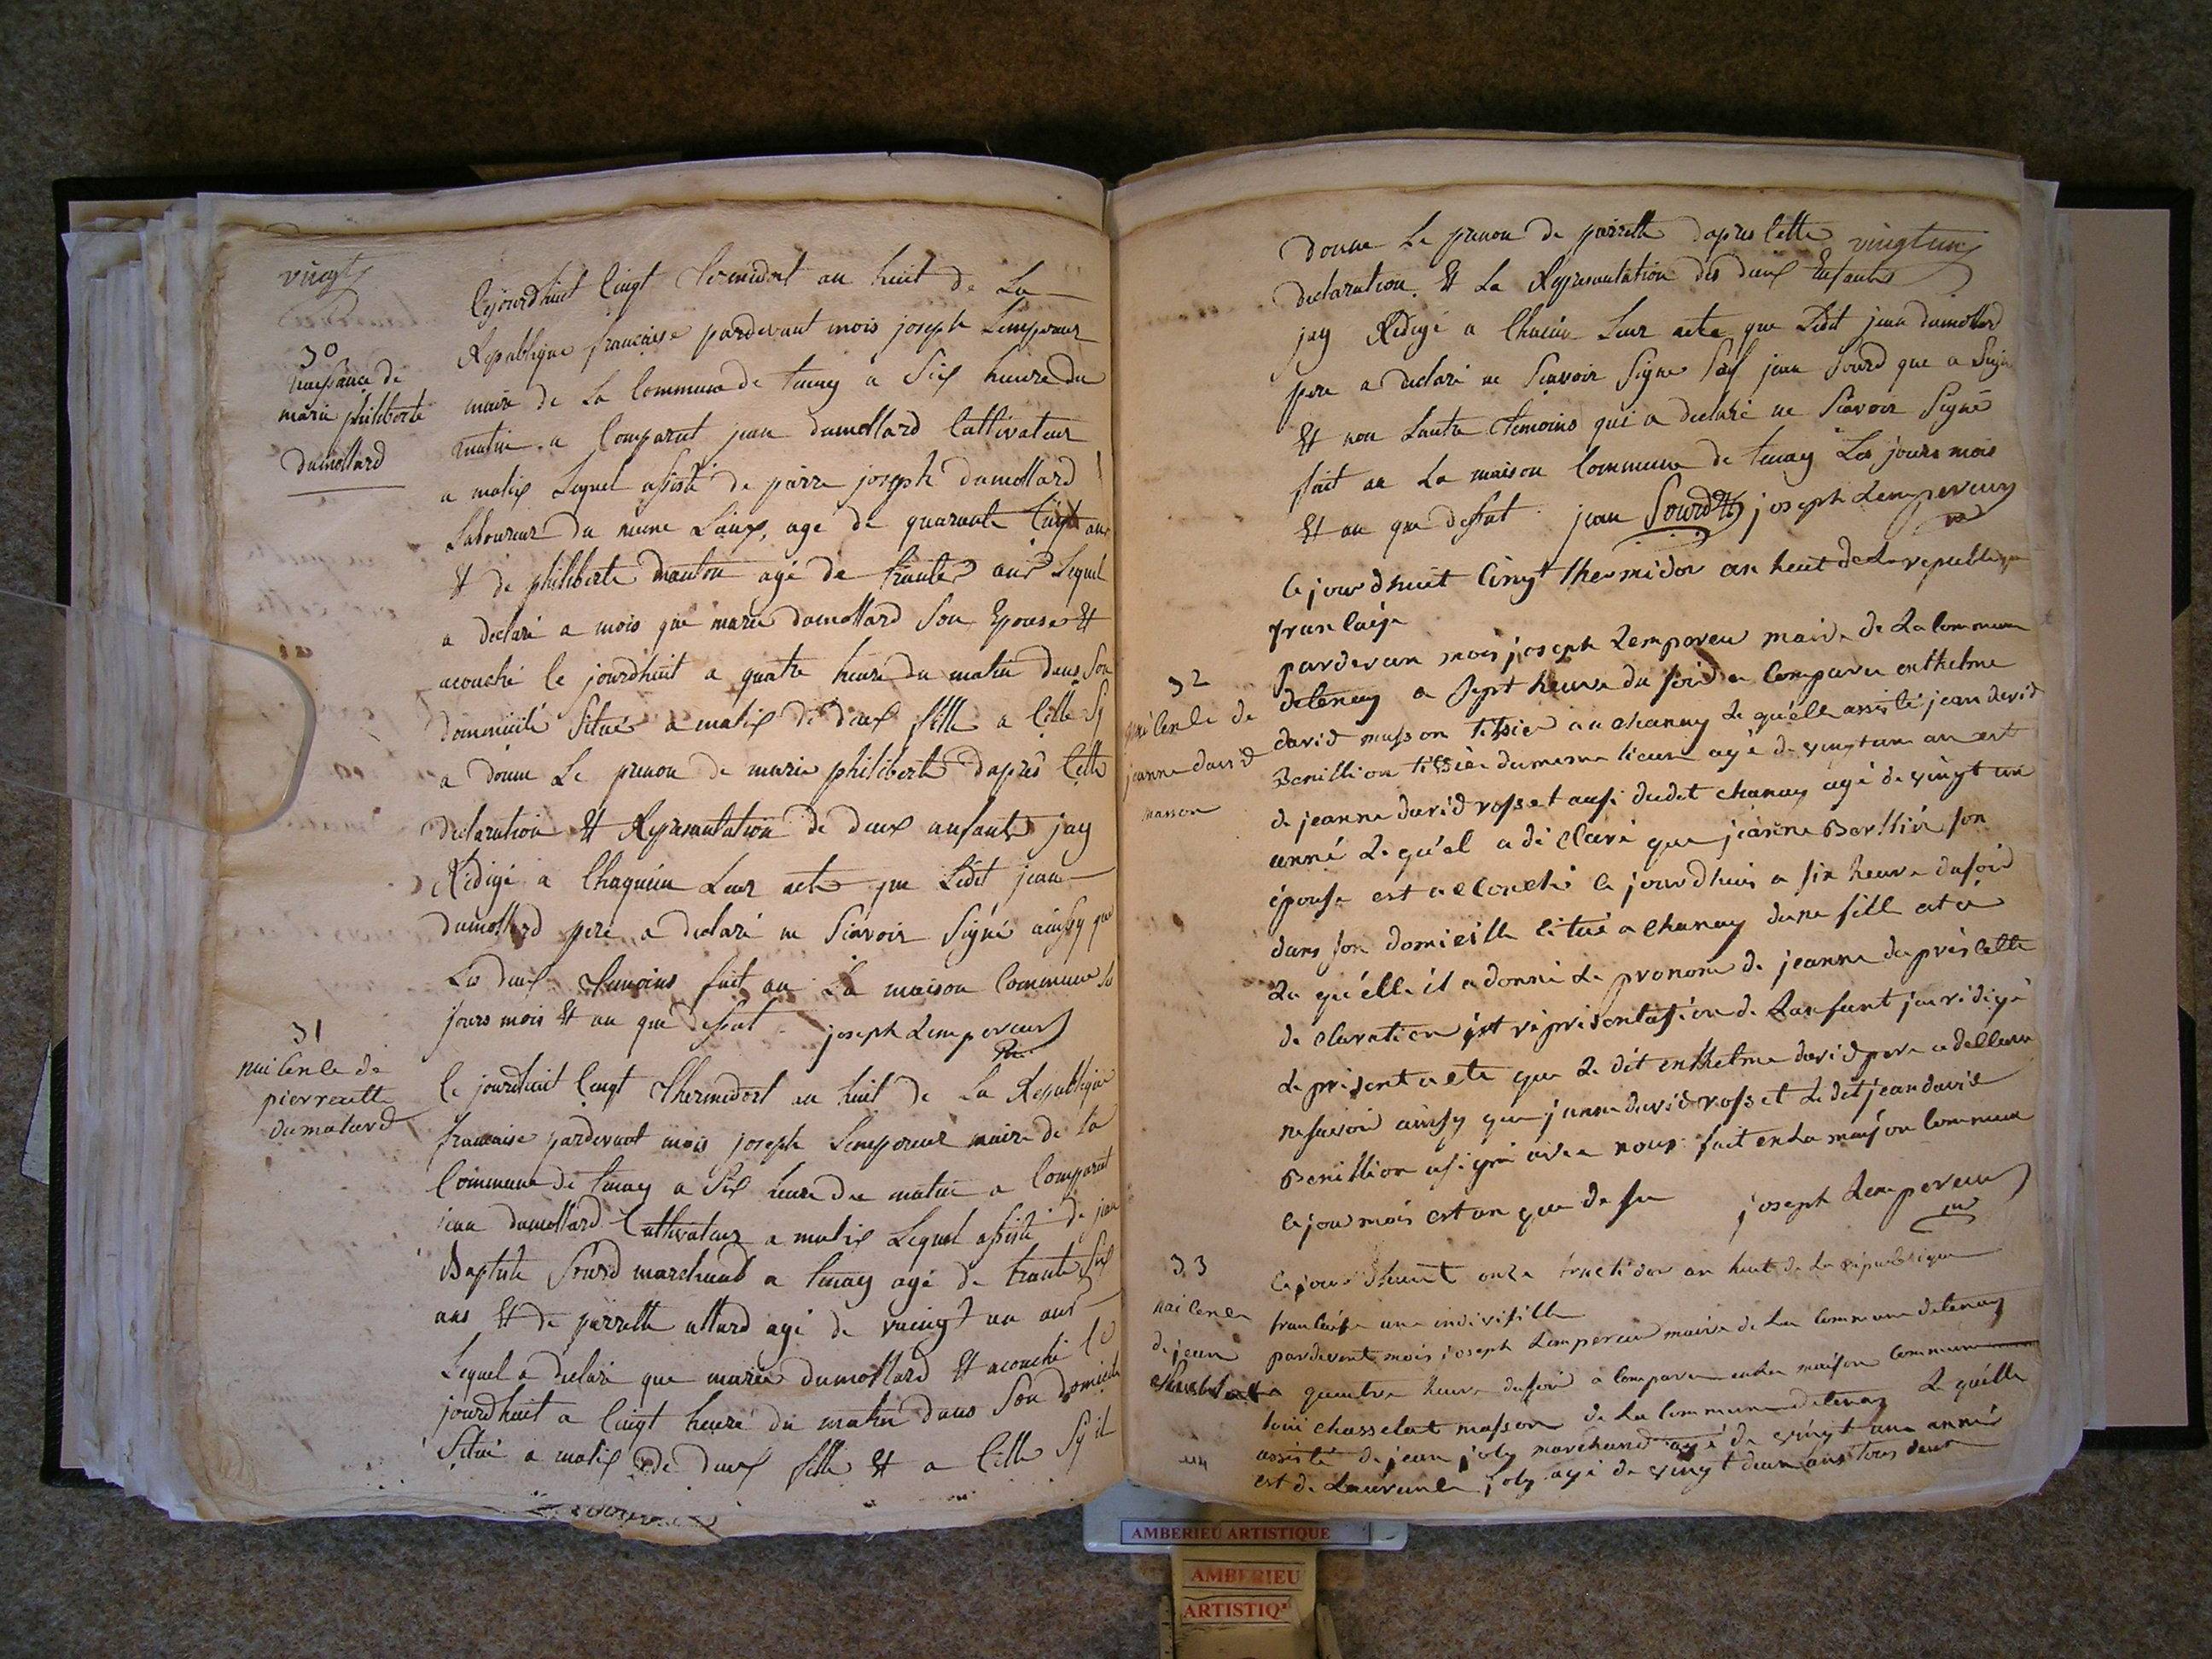 vingt
30
naissance de
marie philiberte
dumollard
Cejourdhuit Cingt termidort an huit de La
Republique francaise pardevant mois joseph Lempereur
maire de La Commune de tenay a Six heure du
matin a Comparut jean dumollard Cultivateur
a malix Lequel assisté de pierre joseph dumollard
Laboureur du meme Lieux, age de quarante Cingt ans
Et de philiberte agé de trante ans Lequel
a declaré a mois que marie dumollard Son Epouse Et
acouché le jourdhuit a quatre heure du matin dans Son
dommicile Situé a malix de deux fille a Celle Sy
a donne Le prenon de marie philiberte dapres Cette
declaration Et Represantation de deux anfants jay
Redigé a Chaquun Leur acte que Ledit jean
dumollard pere a declaré ne Scavoir Signé ainssy que
Les deux temoins fait an La maison Commune Les
jours mois Et an que dessut joseph Lempereur
31
naicence de
pierreette
dumolard
Ce jourdhuit Cingt thermidort an huit de La Republique
francaise pardevant mois joseph Lempereur maire de La
Commune de tenay a Six heure du matin a Comparut
jean dumollard Cultivateur a malix Lequel assisté de jean
Baptiste Sourd marchand a tenay agé de trante Six
ans Et de pierrette allard agé de vuingt un ans
Lequel a declaré que marie dumollard Et acouché Ce
jourdhuit a Cingt heure du matin dans Son domicile
Situé a malix de deux fille Et a Celle Sy il
donne Le prenon de pierrette dapres Cette vingt un
declaration Et La Represantation des deux Enfants
jay Redigé a Chacun Leur acte que Ledit jean dumollard
pere a declaré ne Scavoir Signe Sof jean Sourd que a Signe
Et non Lautre temoins qui a declaré ne Scavoir Signé
fait an La maison Commune de tenay Les jours mois
Et an que dessut jean Sourd joseph Lempereur
Ce jourdhuit Cingt thermidor an heut de La republique
francaise
32
de
jeanne david
masson
pardevan mois joseph Lempereu maire de La Commune
detenay a sept heure du soird a Comparu anthelme
david masson tissier a chanay Le quelle assisté jean david
Benillion tissié dumesme lieux agé de vingt un an est
de jeanne david rosset ausi dudet chanay agé de vingt un
anné Le quel a di Claré que jeanne Berllié son
épouse est a Couché Ce jourdhuis a six heure dusoir
dans son domicille situé a Chanay dune fille et a
La quelle il a donné Le pronom de jeanne daprès Cette
de claration est réprisentasion de Lanfant jai ridigé
Le prisent acte que Le dit anthelme david pere a declare
nesavoir ainsy que jeanne david rosset Le dit jean david
Benillion a signé avec nous fait enLa maison Commune
Ce jour mois est an que dessu joseph Lempereur
33
naicence
de jean
Ce jour dhuit onze fructidor an heut de La république
francaise une indivisille
pardevent mois joseph Lempereu maire de La Commune detenay
a quatre heure dusoir a Comparu enLa maison Commune
louis chasselat masson de La Commune detenay Le quelle
assisté de jean joly marchand agé de vingt une anné
est de Laurance joly agé de vingt deux ans tous deux
AMBERIEU ARTISTIQUE
AMBERIEU
ARTISTIQ